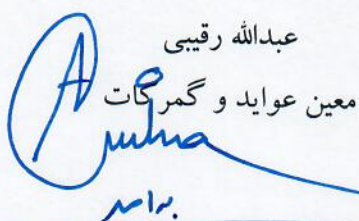 عبدالله رقیبی
معین عواید و گمرکات